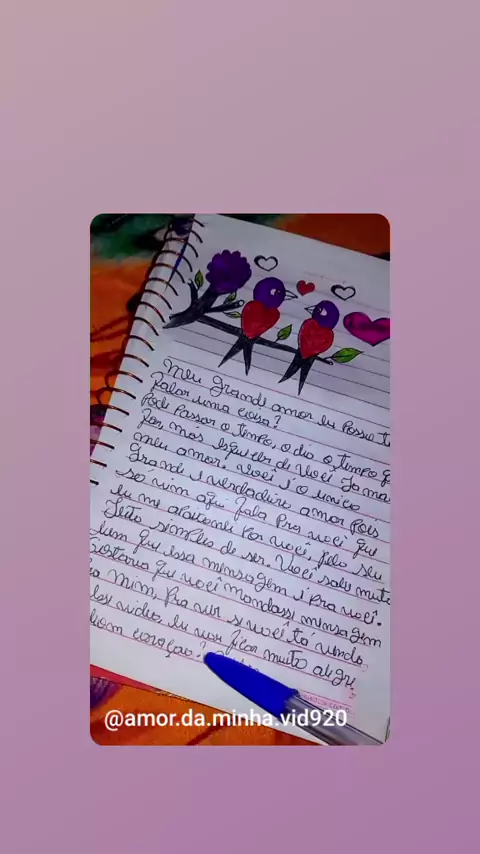 Meu grande amor eu Posso t
falar uma coisa?
Pode Passar o tempo, o dia, o tempo q
for mais de você
meu amor. Você é o único
grande e verdadeiro amor pois
so vim aqui fala Pra você que
eu me apaixonei Por você, pelo seu
Jeito simples de ser. Você sabe muito
bem que essa mensagem é pra você.
Gostaria que você mandasse mensagem
a mim, Pra ver se você tá vendo
os video, eu vou ficar muito alegre
bom coração?
@amor.da.minha.vid920